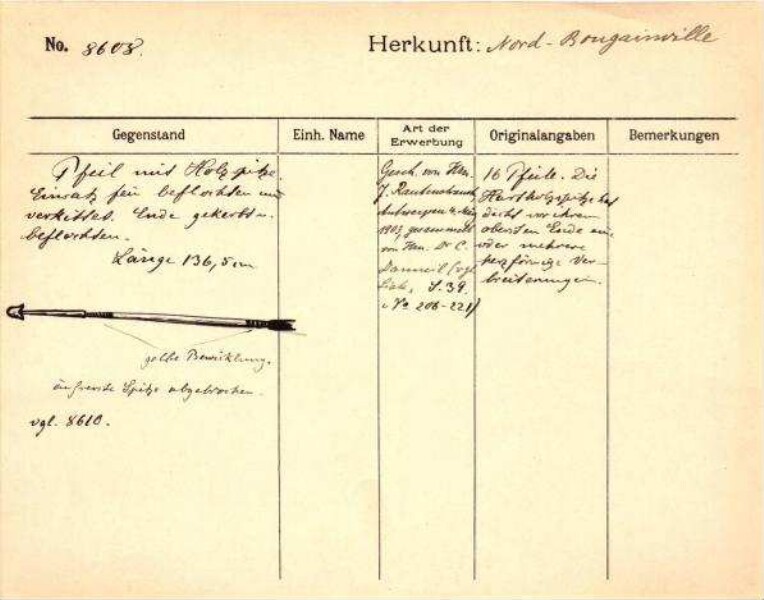 No. 8608.
Herkunft: Nord-Bougainville
Gegenstand
Einh. Name
Art der
Erwerbung
Originalangaben
Bemerkungen
Pfeil mit Holzspitze.
Einsatz fein beflochten und
verkittet. Ende gekerbt u.
beflochten.
Länge 136,5 cm
gelbe Bewicklung.
äußerste Spitze abgebrochen.
vgl. 8610.
Gesch. von Hrn.
J.
Antwerpen
1903, gesammelt
von Hrn. Dr C.
Danneil (vgl.
Liste, S. 39.
No 206-221)
16 Pfeile. Die
Hartholzspitze hat
dicht vor ihrem
obersten Ende eine
oder mehrere
herzförmige Ver-
breiterungen.